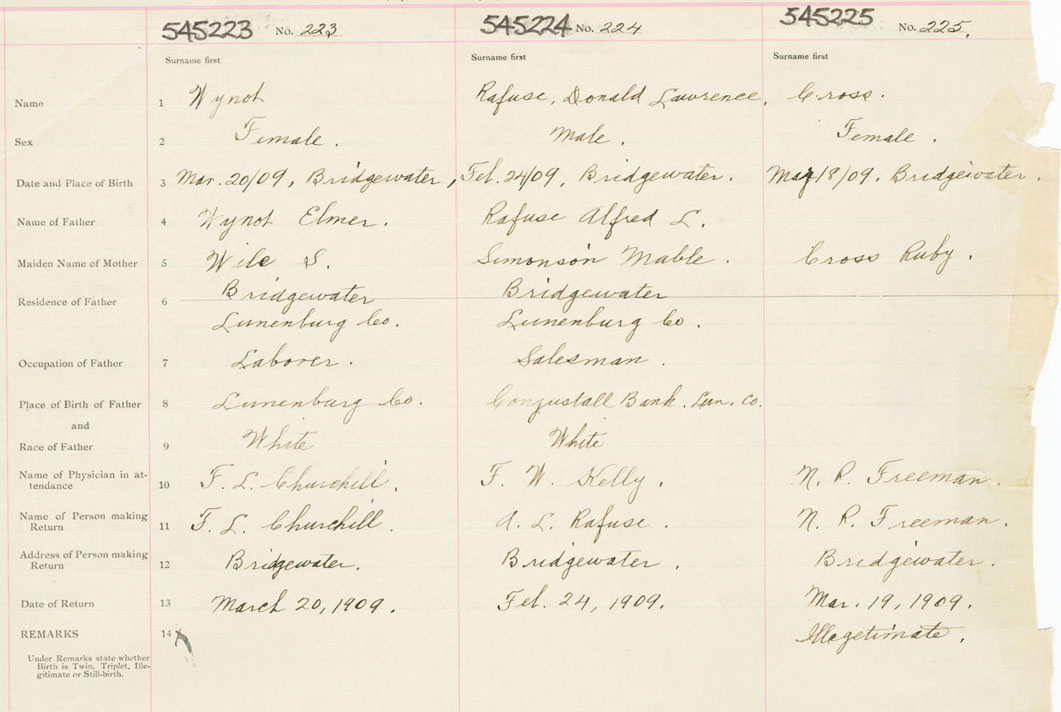 545223 No. 223 545224 No. 224 545225 No. 225.
Surname first Surname first Surname first
Name 1 Wynot Rafuse, Donald Lawrence, Cross.
Sex 2 Female. Male. Female.
Date and Place of Birth 3 Mar. 20/09, Bridgewater, Feb. 24/09, Bridgewater. 18/09. Bridgewater.
Name of Father 4 Wynot Elmer. Rafuse Alfred L.
Maiden Name of Mother 5 Wile S. Simonson Mable. Cross Ruby.
Residence of Father 6 Bridgewater Bridgewater
Lunenburg Co. Lunenburg Co.
Occupation of Father 7 Laborer. Salesman.
Place of Birth of Father 8 Lunenburg Co. Bank. Lun. Co.
and
Race of Father 9 White White
Name of Physician in at-
tendance 10 F. L. Churchill. F. W. Kelly. N. P. Freeman.
Name of Person making
Return 11 F. L. Churchill. A. L. Rafuse. N. P. Freeman.
Address of Person making
Return 12 Bridgewater. Bridgewater. Bridgewater.
Date of Return 13 March 20, 1909. Feb. 24, 1909. Mar. 19, 1909.
REMARKS 14 Illegetimate.
Under Remarks state whether
Birth is Twin, Triplet, Ille-
gitimate or Still-birth.